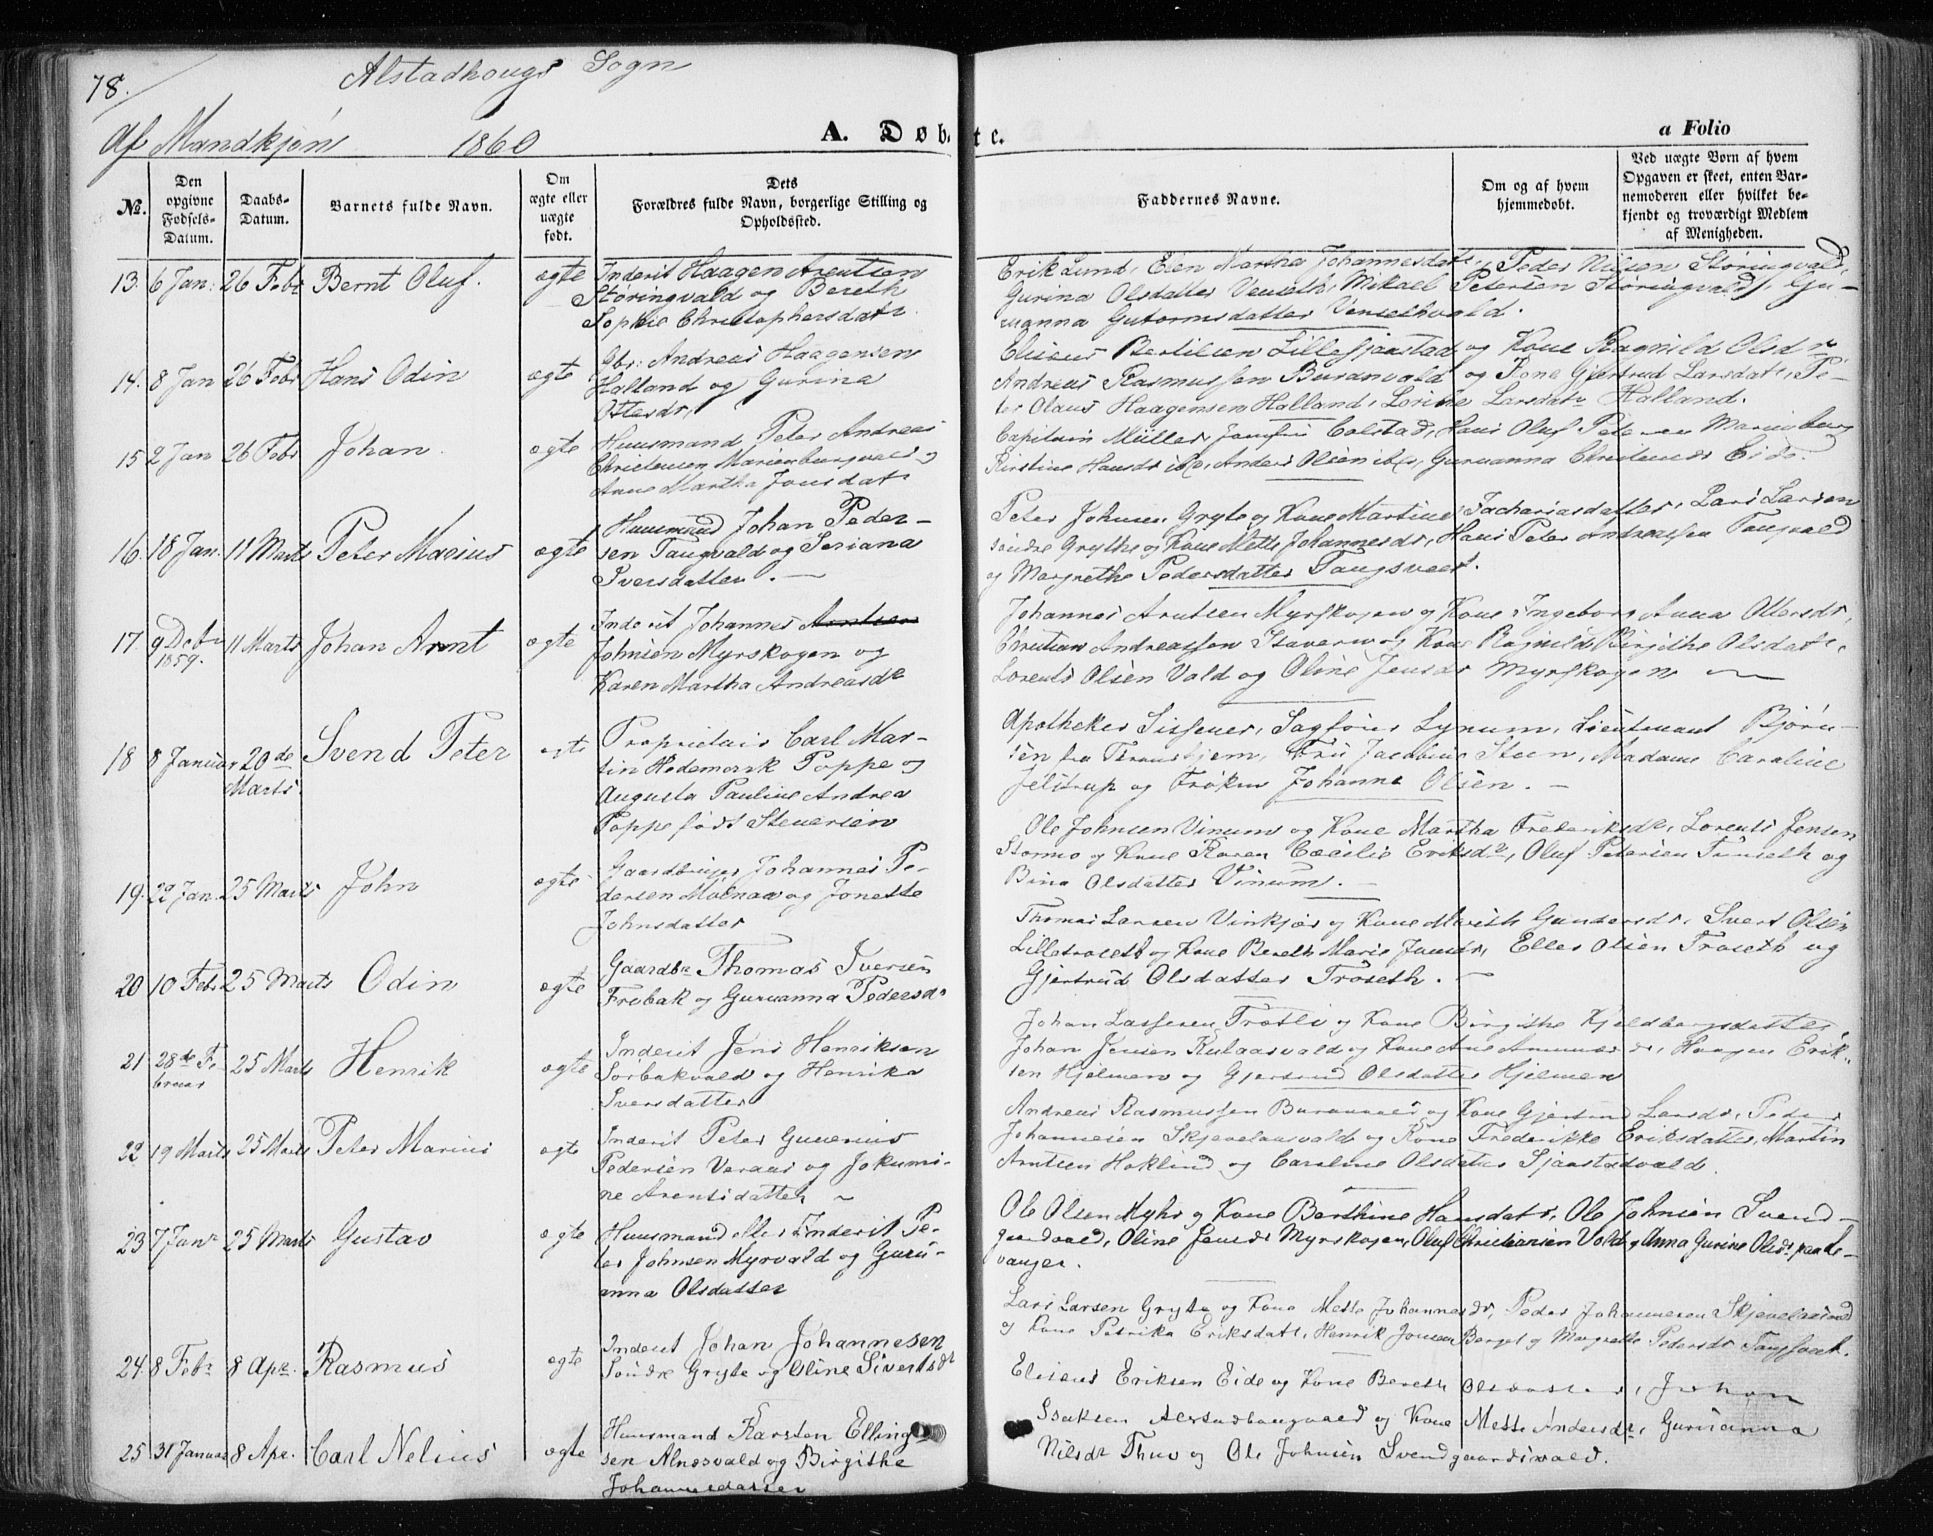 78.
Alstadhougs Sogn
Af Mandkjøn 1860
A. Døbte.
a Folio
No.
Den opgivne Fødsels-Datum.
Daabs-Datum.
Barnets fulde Navn.
Om ægte eller uægte født.
Dets Forældres fulde Navn, borgerlige Stilling og Opholdssted.
Faddernes Navne.
Om og af hvem hjemmedøbt.
Ved uægte Børn af hvem Opgaven er skeet, enten Barnemoderen eller hvilket bekjendt og troværdigt Medlem af Menigheden.
13. 6 Jan: 26 Febr Bernt Oluf. ægte
Inderst Haagen Arentsen
Støringvald og Bereth
Sophie Christophersdatr.
Erik Lund, Elen Martha Johannesdatr, Peder Nilsen Støringvald,
Gurina Olsdatter Venseth, Mikael Petersen Støringvald, Gu-
ruanna Gutormsdatter Vensethvald.
14. 8 Jan 26 Febr Hans Odin ægte
Gbr: Andreas Haagensen
Halland og Gurina
Ottesdr,
Elisæus Bertilsen Lillesjaastad og Kone Ragnild Olsdr
Andreas Rasmussen Buranvald og Kone Gjertrud Larsdatr, Pe-
ter Olaus Haagensen Halland, Lorine Larsdatr Halland.
15 2 Jan 26 Febr Johan. ægte
Huusmand Peter Andreas
Christensen Marienburgvald og
Anne Martha Jonsdatr
Capitain Müller, Jomfru Colstad, Hans Oluf Petersen Marienburg
Kirstine Hansdr ibd, Anders Olsen ibd, Guruanna Christensdr Eide.
16. 18 Jan. 11 Marts Peter Marius ægte
Huusmand Johan Peder-
sen Tangvald og Seriana
Iversdatter.
Peter Johnsen Gryte og Kone Martine Zachariasdatter, Lars Larsen
søndre Grythe og Kone Mette Johannesdr, Hans Peter Andreassen Tangvald
og Margrethe Pedersdatter Tangsveet.
17. 9 Debr 1859. 11 Marts Johan Arnt ægte
Inderst Johannes Arntsen
Johnsen Myrskogen og
Karen Martha Andreasdr
Johannes Arntsen Myrskogen og Kone Ingeborg Anna Ollersdr,
Christian Andreassen Staveren og Kone Ragnild Birgithe Olsdatr,
Lorents Olsen Vald og Oline Jensdr Myrskogen
18 8 Januar 20de Marts Svend Peter ægte
Proprietair Carl Mar-
tin Hedemark Poppe og
Augusta Pauline Andrea
Poppe født Stenersen
Apotheker Sissener, Sagfører Lynum, Lieutenant Bjørn-
sen fra Throndhjem, Fru Jacobine Steen, Madame Caroline
Jelstrup og Frøken Johanna Olsen.
19. 29 Jan. 25 Marts John ægte
Gaardbruger Johannes Pe-
dersen Moenaa og Jonette
Johnsdatter
Ole Johnsen Vinum og Kone Martha Frederiksdr, Lorents Jensen
Stormo og Kone Karen Cæcilie Eriksdr, Oluf Petersen Tunseth og
Bina Olsdatter Vinum.
20 10 Febr 25 Marts Odin ægte
Gaardbr Thomas Iversen
Frebak og Guruanna Pedersdr
Thomas Larsen Vinkjær og Kone Marith Gundersdr, Sivert Olsen
Lilletroseth og Kone Bereth Marie Jonsdr, Eller Olsen Troseth og
Gjertrud Olsdatter Troseth.
21 28de Februar 25 Marts Henrik ægte
Inderst Jens Henriksen
Sorbakvald og Henrika
Iversdatter
Johan Lassesen Trøtli og Kone Birgithe Kjeldbergsdatter,
Johan Jensen Kulaasvald og Kone Ane, Haagen Erik-
sen Hjelmen og Gjertrud Olsdatter Hjelmen
22 19 Marts 25 Marts Peter Marius ægte
Inderst Peter Gunerius
Pedersen Veraas og Jokumi-
ne Arentsdatter
Andreas Rasmussen Buranvald og Kone Gjertrud Larsdr, Peder
Johannesen Skjevelaasvald og Kone Frederikke Eriksdatter, Martin
Arntsen Hoklind og Caroline Olsdatter Sjaastadvald.
23 7 Janr 25 Marts Gustav ægte
Huusmand eller Inderst Pe-
ter Johnsen Myrvald og Guru-
anna Olsdatter
Ole Olsen Myhr og Kone Berthine Hansdatr, Ole Johnsen Svend-
gaardvald, Oline Jensdr Myrskogen, Oluf Christiansen Vald og Anna Gurine Olsdr paa Le-
vanger.
24. 8 Febr 8 Apr. Rasmus ægte
Inderst Johan Johannesen
Søndre Grythe og Oline Sivertsdr
Lars Larsen Grythe og Kone Mette Johannesdr, Peder Johannesen Skjevelaasvald
og Kone Petrika Eriksdatr, Henrik Jonsen Berget og Margrethe Pedersdr Tangsveet.
25 31 Januar 8 Apr. Carl Nelius ægte
Huusmand Karsten Elling-
sen Alnesvald og Birgithe
Johannesdatter
Elisæus Eriksen Eide og Kone Bereth Olsdatter, Johan
Isaksen Alstadhougvald og Kone Mette Andersdr, Guruanna
Nilsdr Thuv og Ole Johnsen Svendgaardsvald.